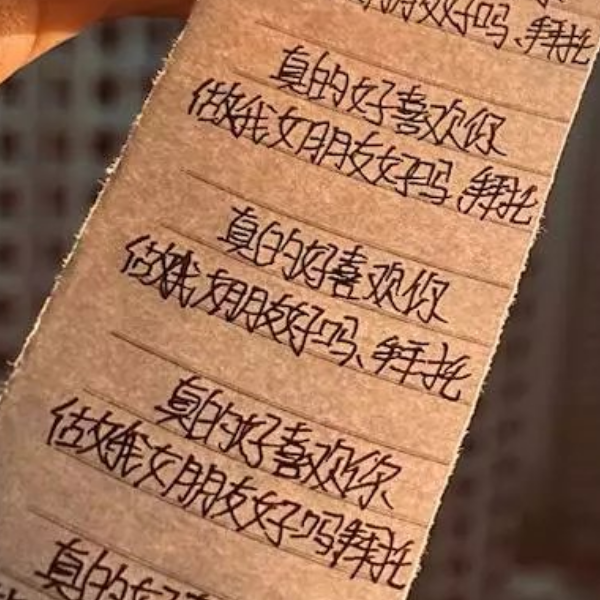 朋友好吗、拜托
真的好喜欢你
做我女朋友好吗、拜托
真的好喜欢你
做我女朋友好吗、拜托
真的好喜欢你
做我女朋友好吗拜托
真的好喜